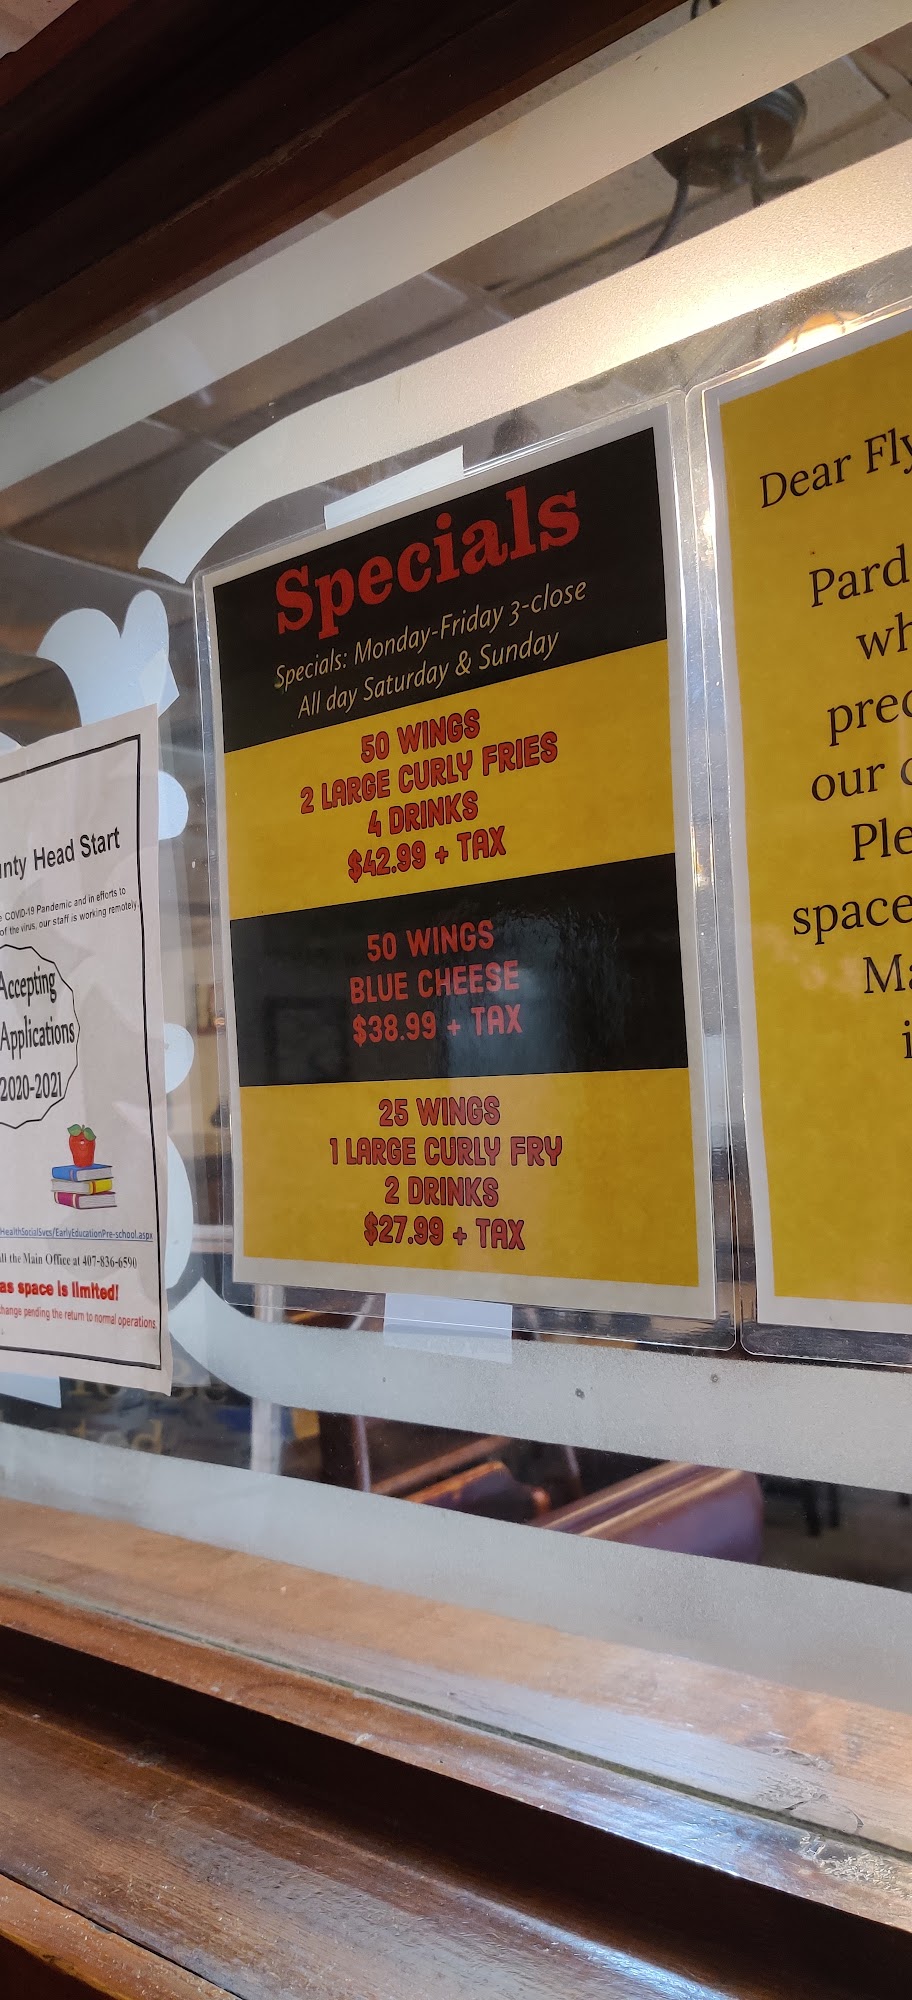 unty Head Start
COVID-19 Pandemic and in efforts to
of the virus, our staff is working remotely.
Accepting
Applications
2020-2021
HealthSocialSvcs/EarlyEducationPre-school.aspx
the Main Office at 407-836-6590
as space is limited!
change pending the return to normal operations.
Specials
Specials: Monday-Friday 3-close
All day Saturday & Sunday
50 WINGS
2 LARGE CURLY FRIES
4 DRINKS
$42.99 + TAX
50 WINGS
BLUE CHEESE
$38.99 + TAX
25 WINGS
1 LARGE CURLY FRY
2 DRINKS
$27.99 + TAX
Dear Fly
Pard
wh
prec
our
Ple
space
Ma
i